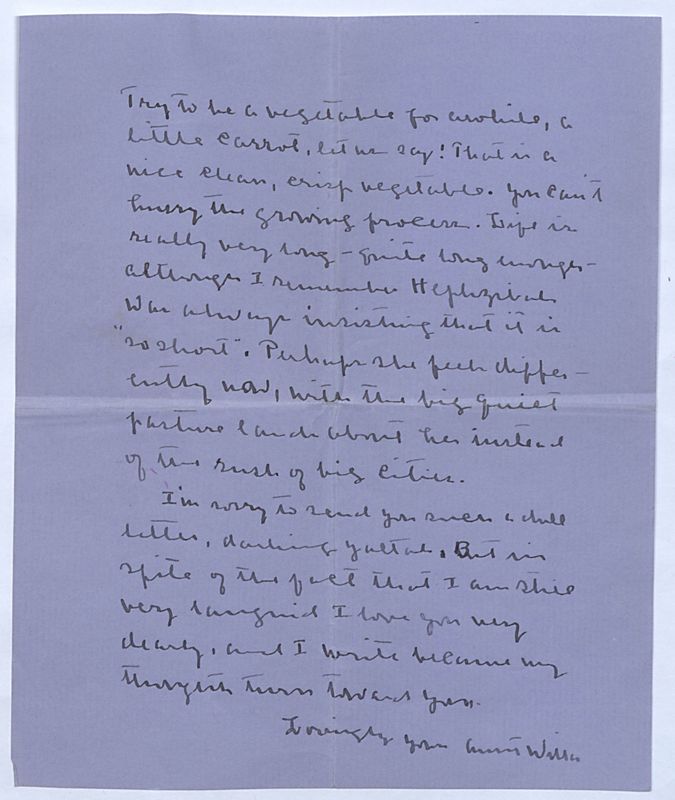 Try to be a vegetable for awhile, a
little carrot, let us say! That is a
nice clean, crisp vegetable. You can't
hurry the growing process. Life is
really very long – quite long enough –
although I remember Hephzibah
was always insisting that it is
"so short". Perhaps she feels differ-
ently now, with the big quiet
pasture lands about her instead
of the rush of big cities.
I'm sorry to send you such a dull
letter, darling Yaltah. But in
spite of the fact that I am still
very languid I love you very
dearly, and I write because my
thoughts turn toward you.
Lovingly your Aunt Willa